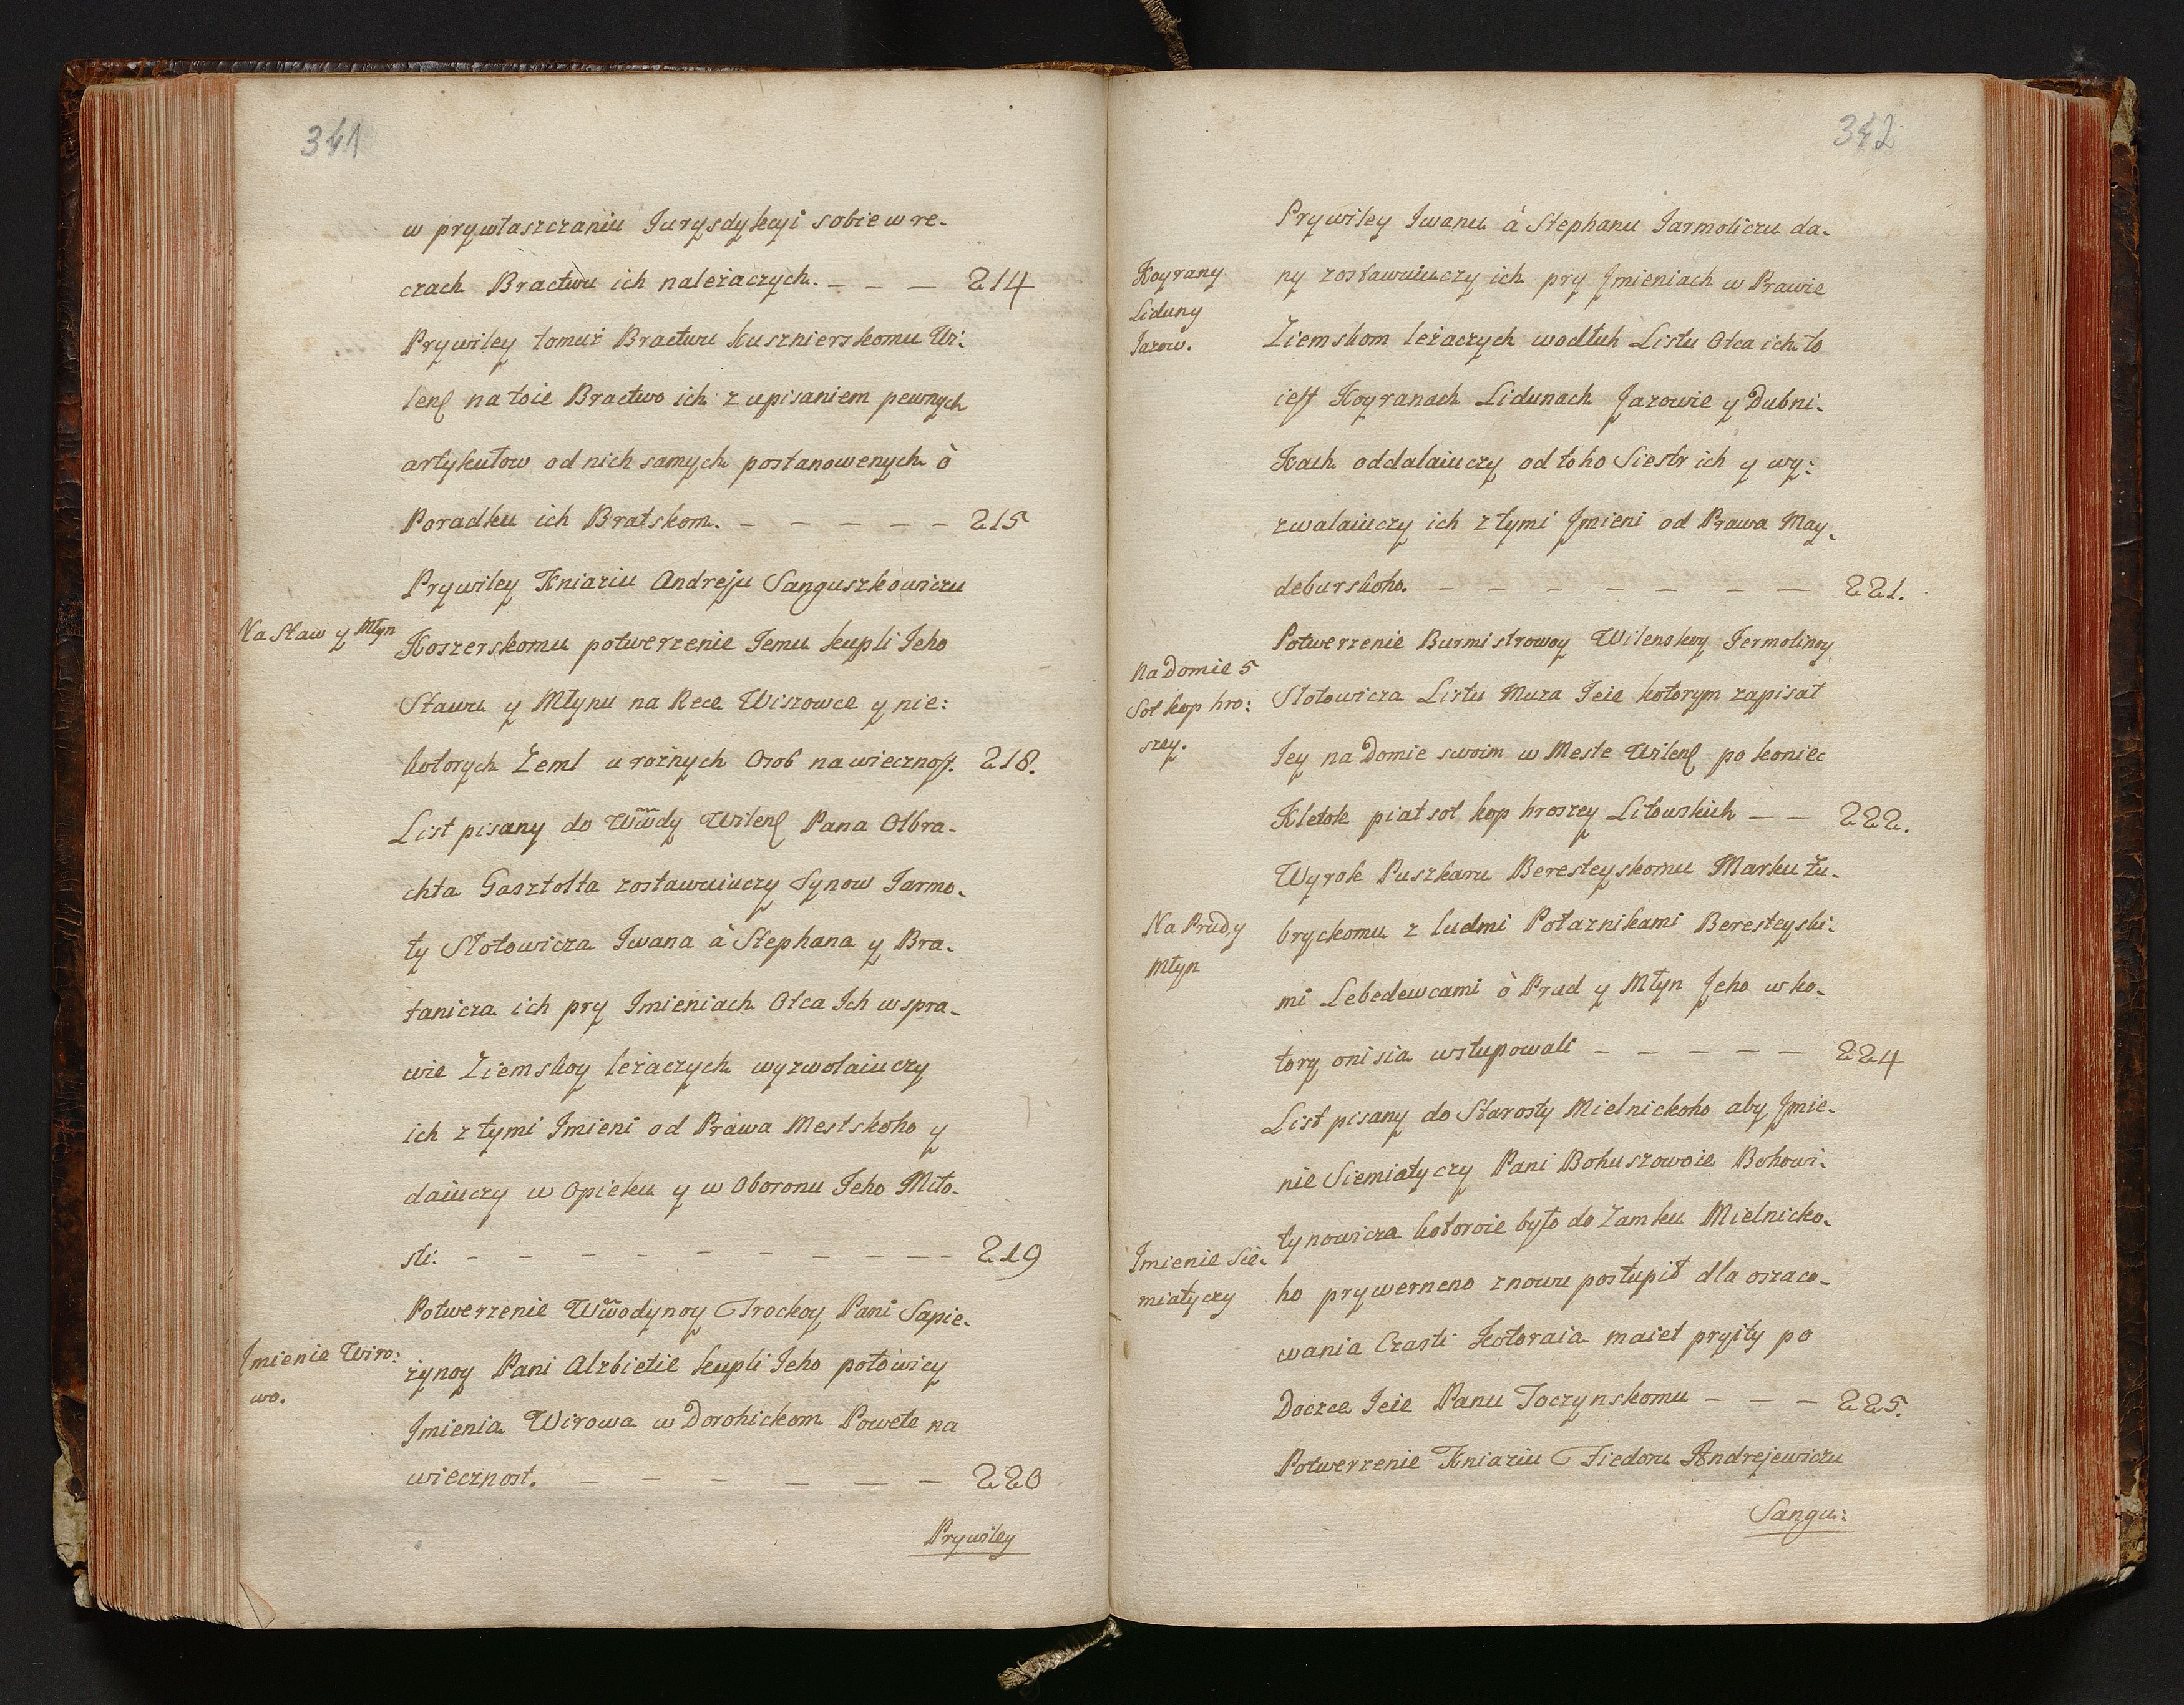 341
w prywłaszczaniu Jurysdykcyi sobie w re-
czach Bractwu ich należaczych. - - - 214
Prywiley tomuż Bractwu kusznierskomu Wi:
lenſ na toie Bractwo ich z upisaniem pewnych
artykułow od nich samych postanowenych ò
Poradku ich Bratskom. - - - - - 215
Prywiley Kniaziu Andreju Sanguszkowiczu
Na Staw y Młyn
Koszerskomu potwerzenie Jemu kupli Jeho
Stawu y Młynu na Rece Wiszowce y nie:
kotorych Zeml u rożnych Osob na wiecznoſt. 218.
List pisany do Wwdy Wilenſ Pana Olbra-
chta Gasztolta zostawuiuczy Synow Jarmo-
ły Słotowicza Iwana à Stephana y Bra-
tanicza ich pry Imieniach Otca Ich w spra-
wie Ziemskoy leżaczych wyzwolaiuczy
ich z tymi Imieni od Prawa Mestskoho y
daiuczy w Opieku y w Oboronu Jeho Miło-
sti: - - - - - - - - - 219
Potwerzenie Wwodynoy Trockoy Pani Sapie-
Imienie Wiro:
wo.
żynoy Pani Alzbietie kupli Jeho połowicy
Imienia Wirowa w Dorohickom Powete na
wiecznost. - - - - - - 220
Prywiley
342
Prywiley Iwanu à Stephanu Jarmoliczu da-
Koyrany
Liduny
Jazow.
ny zostawuiuczy ich pry Imieniach w Prawie
Ziemskom leżaczych wodłuh Listu Otca ich to
ieſt Koyranach Lidunach Jazowie y Dubni-
Kach oddalaiuczy od toho Siestr ich y wy:
zwalaiuczy ich z tymi Imieni od Prawa May-
deburskoho. - - - - - - - 221.
Potwerzenie Burmistrowoy Wilenskoy Jermolinoy
Na Domie 5
Sot kop hro:
szey.
Słotowicza Listu Muza Jeie kotorym zapisał
Jey na Domie swoim w Meste Wilenſ po koniec
Kletok piat sot kop hroszey Litowskich - - 222.
Wyrok Puszkaru Beresteyskomu Marku Zu-
Na Prud, y
Młyn
bryckomu z ludmi Potaznikami Beresteyski-
mi Lebedewcami ò Prud y Młyn Jeho w ko-
tory oni sia wstupowali - - - - - 224
List pisany do Starosty Mielnickoho aby Imie-
nie Siemiatyczy Pani Bohuszowoie Bohowi-
tynowicza kotoroie było do Zamku Mielnicko-
Imienie Sie-
miatyczy
ho prywerneno znowu postupił dla oszaco-
wania Czasti Kotoraia maiet pryity po
Doczce Jeie Panu Toczynskomu - - - 225.
Potwerzenie Kniaziu Fiedoru Andrejewiczu
Sangu: